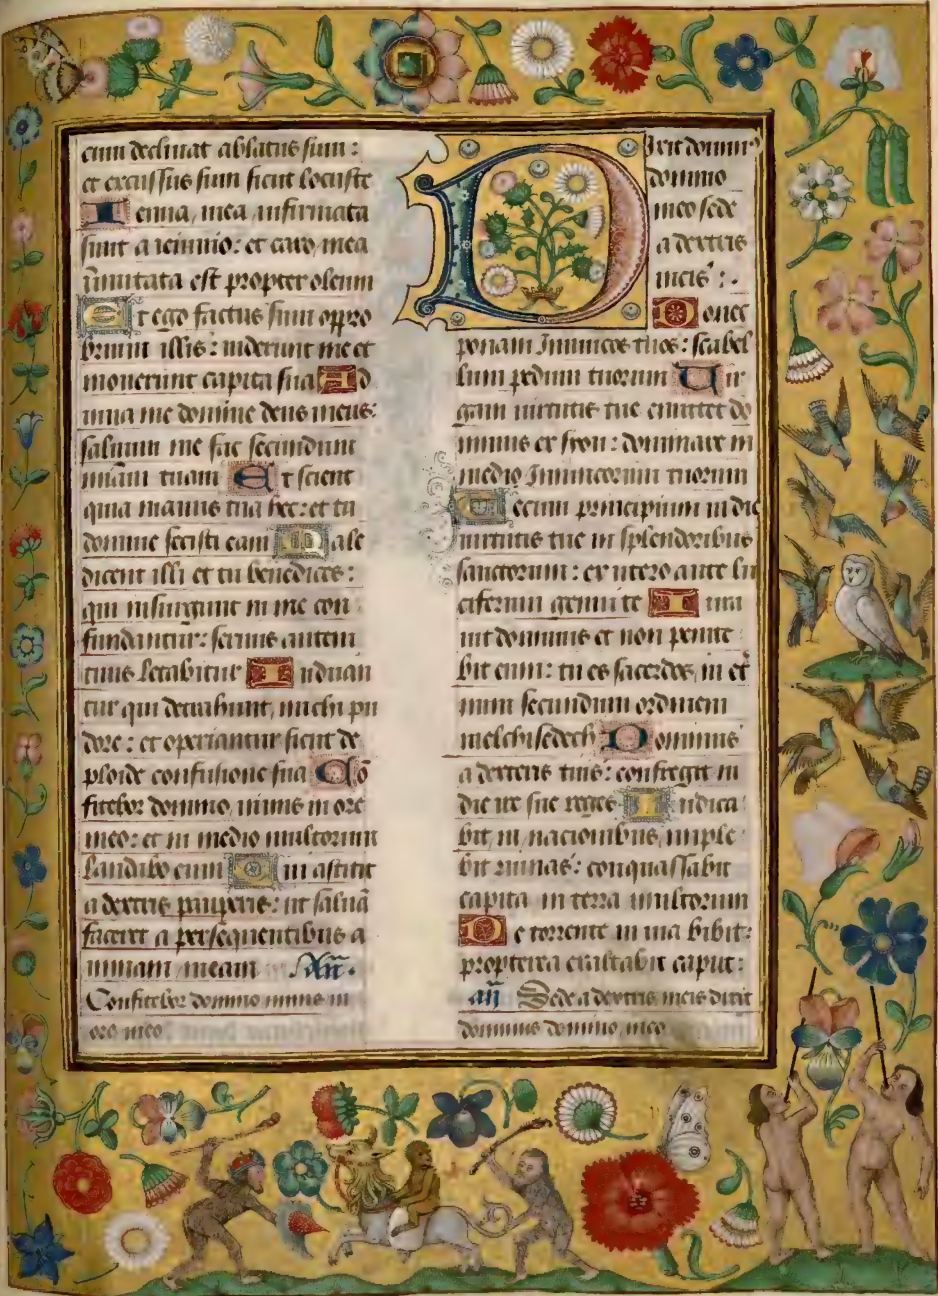 cum declinat ablatus sum :
et excussus sum sicut locuste
Genua mea infirmata
sunt a ieiunio: et caro mea
īmutata est propter oleum
Et ego factus sum oppro
brium illis: uiderunt me et
mouerunt capita sua Ad
iuua me domine deus meus:
saluum me fac secundum
mīam tuam Et scient
quia manus tua hec: et tu
domine fecisti eam Male
dicent illi et tu benedices:
qui insurgunt in me con
fundantur: seruus autem
tuus letabitur Induan
tur qui detrahunt michi pu
dore: et operiantur sicut de
ploide confusione sua Cō
fitebor domino nimis in ore
meo: et in medio multorum
laudabo eum Qui astitit
a dextris pauperis: ut saluā
faceret a persequentibus a
nimam meam Añ.
Confitebor domino nimis in
ore meo
Dixit dominꝰ
domino
meo sede
a dextris
meis :.
Donec
ponam Inimicos tuos: scabel
lum pedum tuorum Uir
gam uirtutis tue emittet do
minus ex syon: dominare in
medio Inimicorum tuorum
Tecum principium in die
uirtutis tue in splendoribus
sanctorum: ex utero ante lu
ciferum genui te Iura
uit dominus et non penite
bit eum: tu es sacerdos in et̄
num secundum ordinem
melchisedech Dominus
a dextris tuis: confregit in
die ire sue reges Iudica
bit in nacionibus imple
bit ruinas: conquassabit
capita in terra multorum
De torrente in uia bibit:
propterea exaltabit caput:
añ Sede a dextris meis dixit
dominus domino meo